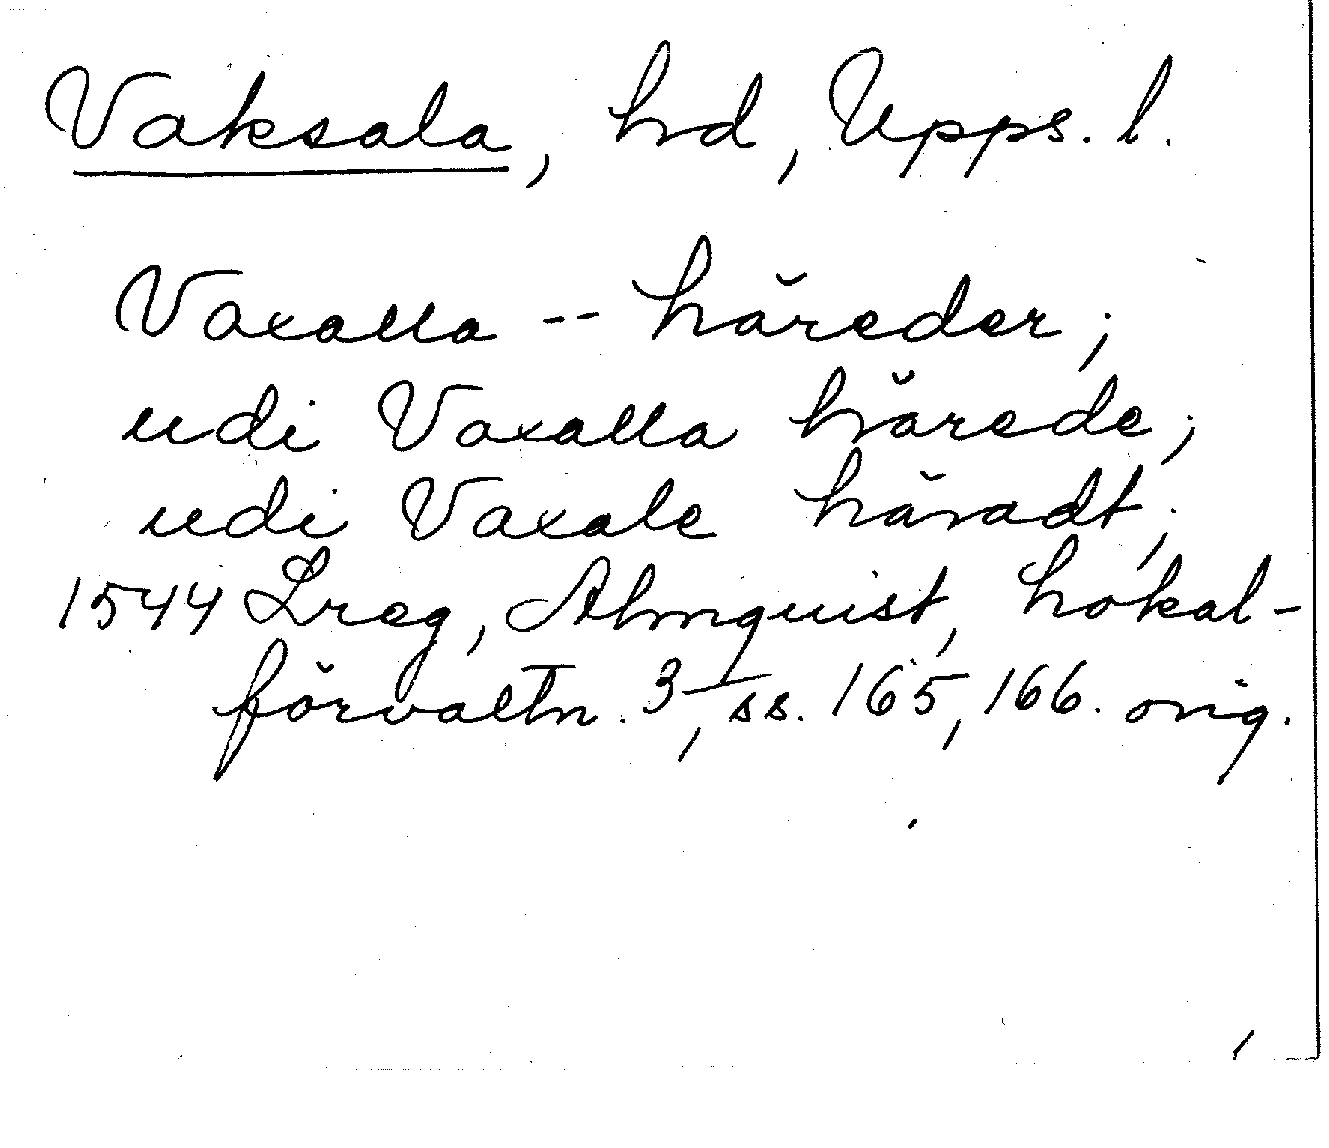 Vaksala, hd, Upps. l.
Vaxalla -- häreder;
udi Vaxalla härede;
udi Vaxale häradt;
1544 Lreg, Almquist, Lokal-
förvaltn. 3, ss. 165, 166. orig.